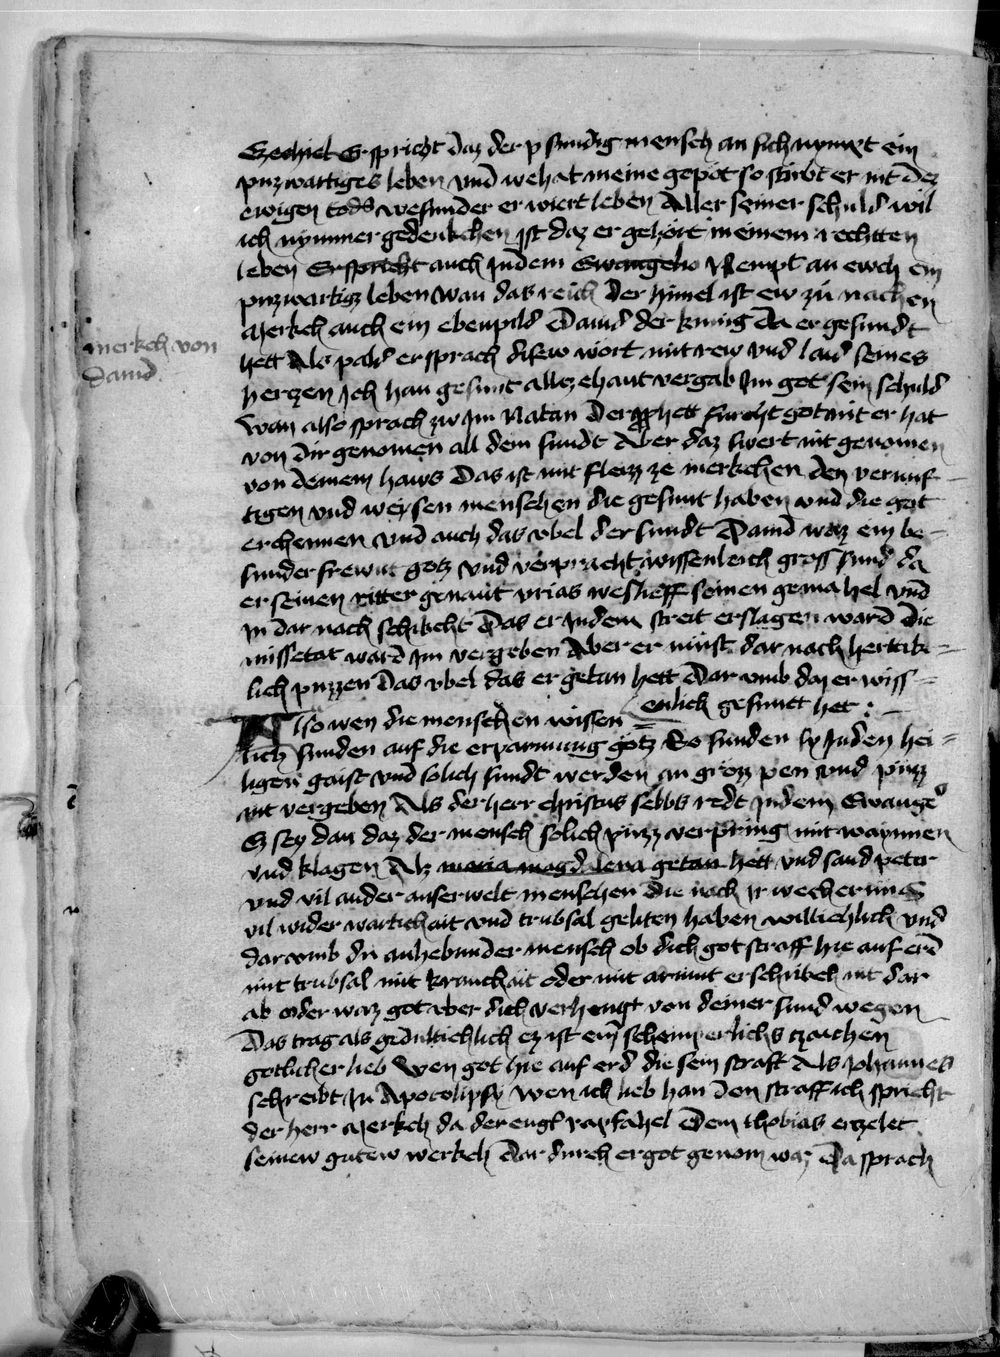 Ezechiel Er spricht daz der p sundig mensch an sich nympt ein
puzwartiges leben vnd wehat meine gepot so stirbt er nit des
ewigen todes wesunder er wiert leben Aller seiner schuld wil
ich nymmer gedenkchen Ist daz er gehört meinem rechtten
leben Er spricht auch Indem Ewangelio Nempt an ewch ein
puzwartigz leben wan das reich der himel ist ew zu nachen
Merkch auch ein ebenpild Dauid der kunig da er gesundt
hett Als pald er sprach disew wort mit rew vnd laid seines
merkch von
dauid
hertzen Ich han gesunt allczehant vergab Im got sein schuld
wan also sprach zw Im Natan der prophett furcht got nit er hat
von dir genomen all dein sundt Aber daz swert nit genomen
von deinem haws Das ist mit fleizz ze merkchen den vernuf
tigen vnd weysen menschen die gesunt haben vnd die got
erchennen vnd auch das vbel der sundt Dauid waz ein be-
sunder frewnt gotz vnd verpracht wissenleich gross sund da
er seinen ritter genant vrias weslieff seinen gemahel vnd
In dar nach schikcht Das er Indem streit erslagen ward die
missetat ward Im vergeben Aber er must dar nach hertikc-
lich puzzen Das vbel das er getan hett Dar vmb daz er wiss-
enlich gesuntt het :
Also wen die menschen wissen
lich sunden auf die erparmung gotz So sunden sy Inden hei-
ligen gaist vnd solich sundt werden an grozz pen vnd puzz
nit vergeben Als der herr christus selbs redt Indem Ewange
Es sey dan daz der mensch solich puzz verpring mit waynnen
vnd klagen Alz maria magdalena getan hett vnd sand peter
vnd vil ander auserwelt menschen die nach ir wecherung
vil wider wartichait vnd trubsal geliten haben willichlich vnd
dar vmb du anhebunder mensch ob dich got straff hie auf erd
mit trubsal mit kranchait oder mit armut erschrikch nit dar
ab oder waz got vber dich verhengt von deiner sund wegen
Das trag als gedultichlich ez ist ein scheinperlichs czaichen
gotlicher lieb Wen got hie auf erd die sein straft Als Johannes
schreibt In Apocolipsy wen ich lieb han den straff ich spricht
der herr Merkch da der engl rayfahel dem thobias erczelet
seinew gutew werkch Dar durch er got genom waz Da sprach